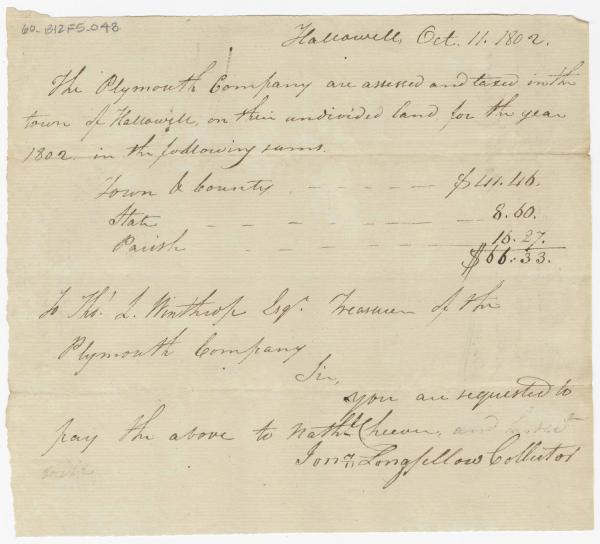 60-B12F5-048
Hallowell, Oct. 11. 1802.
The Plymouth Company are assessed and taxed, in the
town of Hallowell, on their undivided land, for the year
1802, in the following sums.
Town & County - - - - $41.46.
State - - - - - - 8.60.
Parish - - - - - 16.27.
$66.33.
To Thos. L. Winthrop Esqr. Treasurer of the
Plymouth Company
Sir,
you are requested to
pay the above to Nathl. Cheever, and
Jona. Longfellow Collector